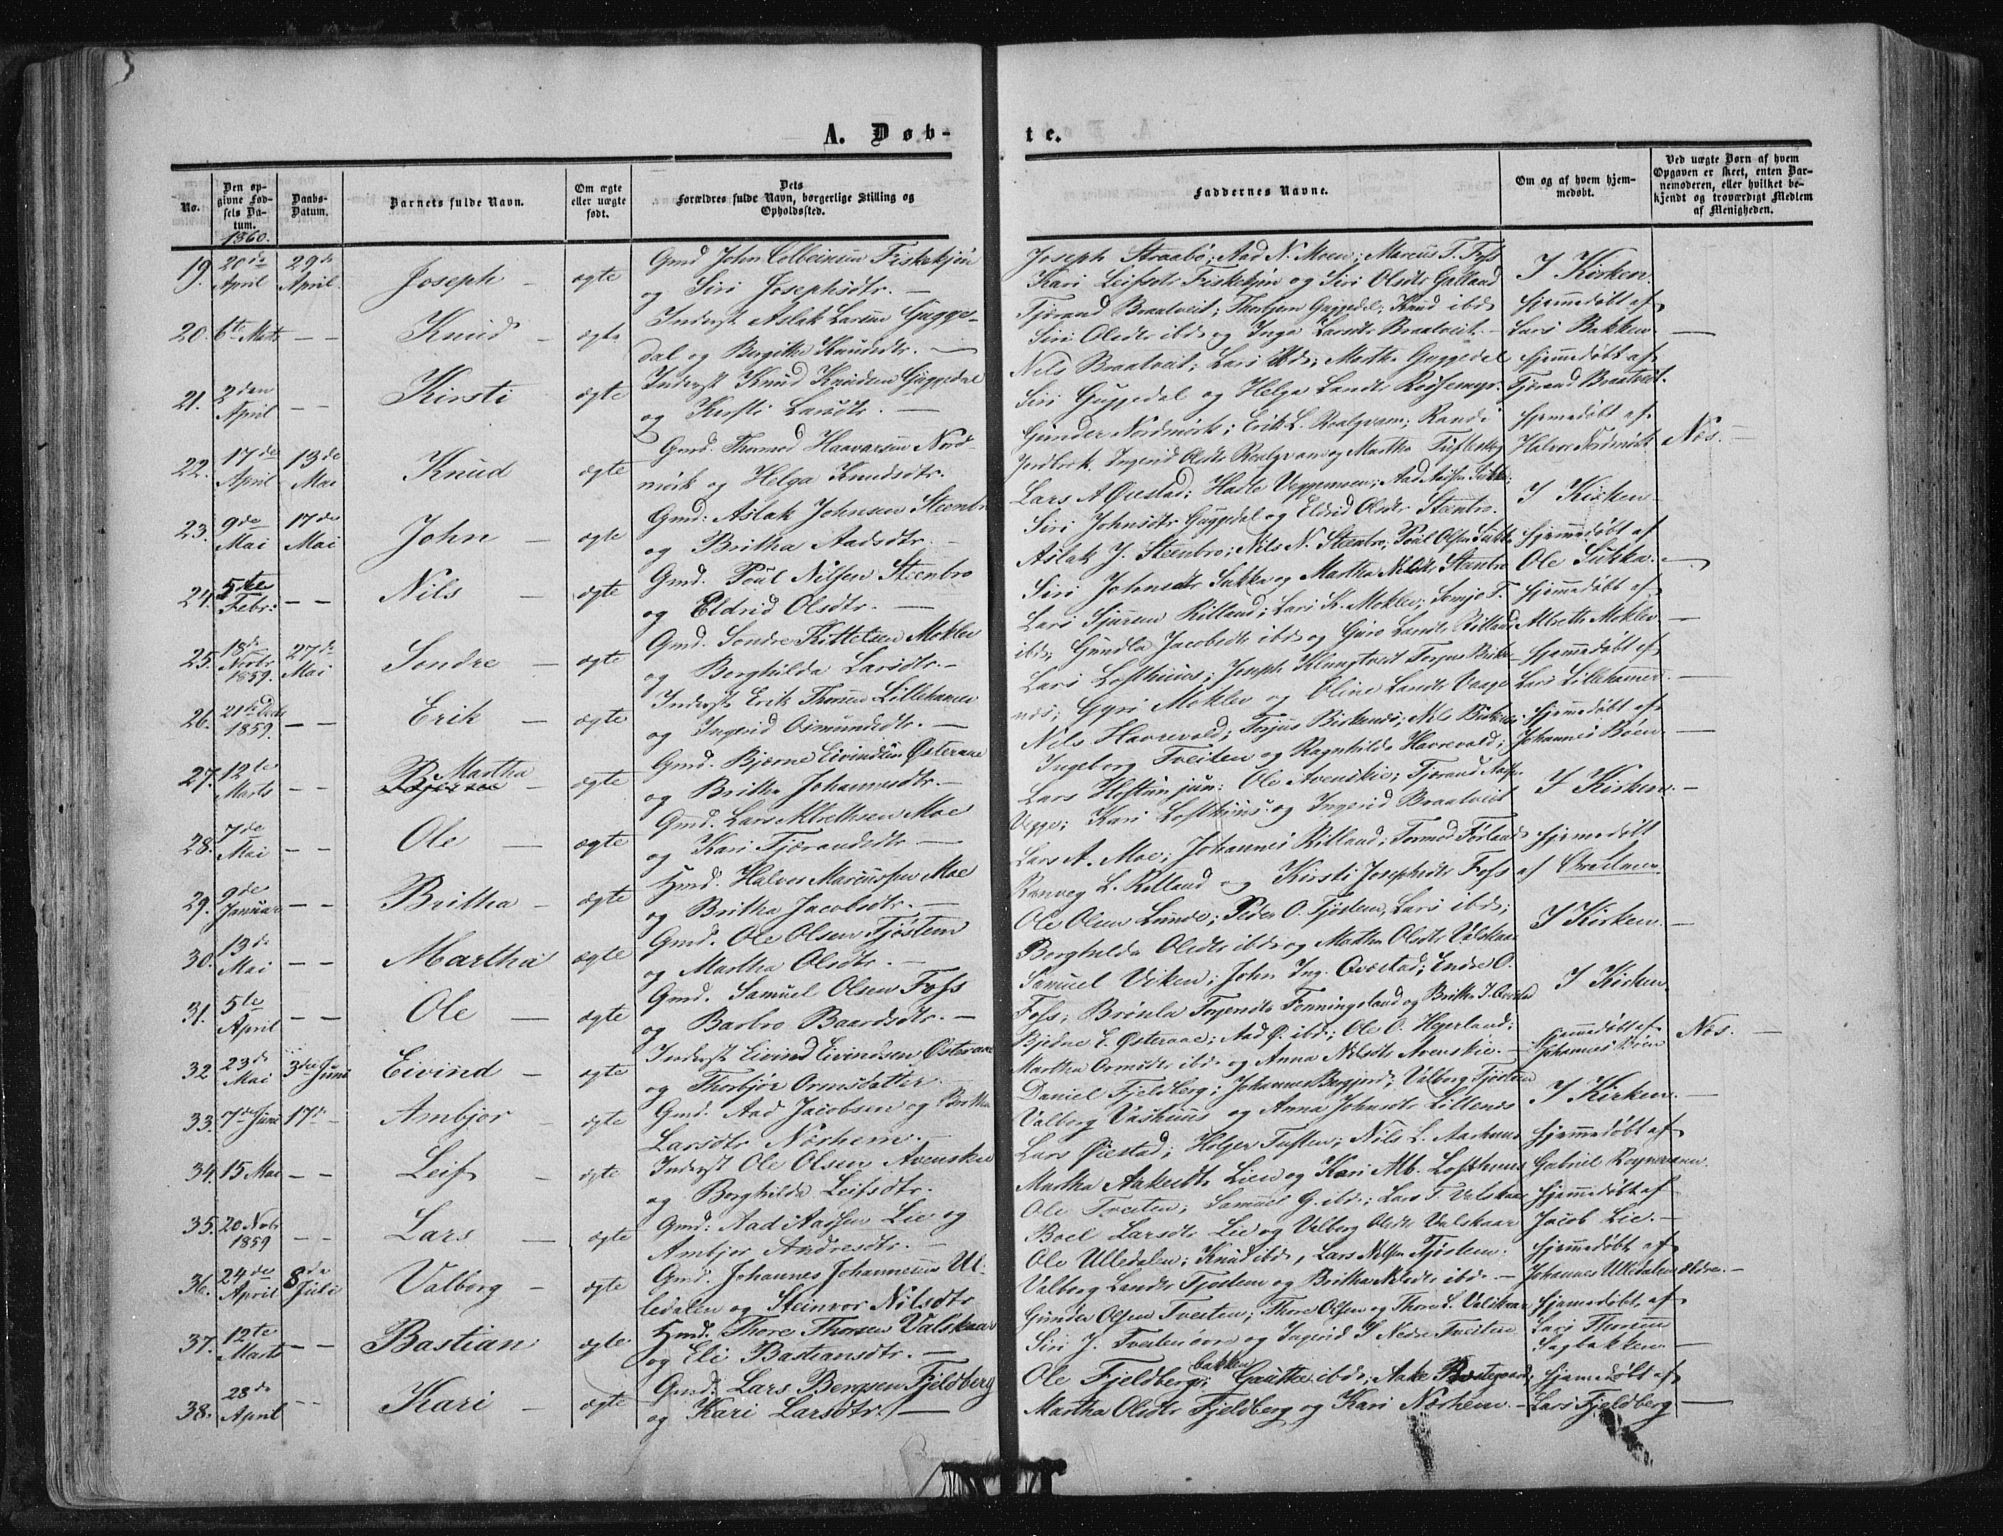 A. Døb-
te.
No.
Den op-
givne Fød-
sels Da-
tum.
1860.
Daabs-
Datum.
Barnets fulde Navn.
Om ægte
eller uægte
født.
Dets
Forældres fulde Navn, borgerlige Stilling og
Opholdssted.
Faddernes Navne.
Om og af hvem hjem-
medøbt.
Ved uægte Børn af hvem
Opgaven er skeet, enten Bar-
nemoderen, eller hvilket be-
kjendt og troværdigt Medlem
af Menigheden.
19. 20de April 29de April Joseph - ægte
Gmd John Fiskekjøn
og Siri Josephsdtr. -
Joseph Straabø; Aad N. Moen; Marcus T. Foss
Kari Leifsdt Fiskekjøn og Siri Olsdtr Galland
I Kirken.
20. 6te Marts - - Knud - ægte
Inderst Aslak Larsen Guggedal og Bergithe Knudsdtr. -
Tjærand Braatveit; Thorbjørn Guggedal; Knud ibd;
Siri Olsdtr ibd; og Inga Larsdtr Braatveit. -
Hjemmedøbt af
Lars Bakken -
21. 2den April - - Kirsti ægte
Inderst Knud Knudsen Guggedal
og Kirsti Larsdtr. -
Nils Braatveit; Lars ibd; Martha Guggedal
Siri Guggedal og Helga Larsdtr
Hjemmedøbt af
Tjærand Braatveit.
22. 17de April 13de Mai Knud ægte
Gmd. Thormod Haavarsen Nord-
mork og Helga Knudsdtr.
Gunder Nordmork; Erik L. Roalqvam; Randi
Ingerid Olsdtr Roalqvam og Martha
Hjemmedøbt af
Halvor Nordmork
Næs. -
23. 9de Mai 17de Mai John - ægte
Gmd: Aslak Johnsen Steenbro
og Britha Aadsdtr. -
Lars A Øvestad; Hadle Veggemoen; Aad
Siri Johnsdtr Guggedal og Eldrid Olsdtr Steenbro.
I Kirken -
24. 5te Febr: - - Nils - ægte
Gmd. Poul Nilsen Steenbro
og Eldrid Olsdtr. -
Aslak J. Steenbro; Nils N. Steenbro; Poul Olsen Sukka
Siri Johnsdtr Sukka og Martha Nilsdtr Steenbro
Hjemmedøbt af
Ole Sukka. -
25. 18de Novbr 1859. 27de Mai Sondre - ægte
Gmd. Sondre Kittelsen Moklev
og Borghilda Larsdtr. -
Lars Sjursen Rilland; Lars K. Moklev;
ibd; Gundla Jacobsdtr ibd; og Guro Larsdtr Rilland
Hjemmedøbt af
Albreth Moklev -
26. 21de Decbr 1859. - - Erik - ægte
Inderst Erik Thorsen Lillehamer
og Ingerid Osmundsdtr. -
Lars Lofthuus; Joseph Klungtveit
Gyri Moklev og Oline Larsdtr Vaage
Hjemmedøbt af
Lars Lillehamer. -
27. 12te Marts - - Martha - ægte
Gmd. Bjørne Eivindsen Østeraae
og Britha Johannesdtr. -
Nils Havrevold; Torjus Birkenes; Nils
Ingeborg Tveiten og Ragnhilda Havrevold;
Hjemmedøbt af
Johannes Bøen. -
28. 7de Mai - - Ole - ægte
Gmd. Lars Albrethsen Moe
og Kari Tjærandsdtr -
Lars Hoftun jun: Ole Avenskie; Tjærand
Vegge; Kari Lofthuus: og Ingerid Braatveit
I Kirken. -
29. 9de Januar - - Britha - ægte
Hmd. Halvor Marcussen Moe
og Britha Jacobsdtr. -
Lars A. Moe; Johannes Rilland; Tormod Førland
Ranveg L. Rilland og Kirsti Josephsdtr Foss
Hjemmedøbt
af
30. 13de Mai - - Martha ægte
Gmd. Ole Olsen Tjøstem
og Martha Olsdtr. -
Ole Olsen Lunde; Peder O. Tjøstem, Lars ibd;
Borghilda Olsdtr ibd; og Martha Olsdtr Valskaar
I Kirken. -
31. 5te April - - Ole - ægte
Gmd. Samuel Olsen Foss
og Barbro Baardsdtr. -
Samuel Viken; John Ing. Øvestad; Endre O.
Foss; Brynla Fenningsland og Britha
I Kirken.
32 23de Mai 3die Juni Eivind - ægte
Inderst Eivind Eivindsen Østeraae
og Thorbjør Ormsdatter. -
Bjødne E. Østeraae; Aad Ø. ibd; Ole O. Hegerland;
Martha Ormsdtr ibd; og Anna Nilsdtr Avenskie. -
Hjemmedøbt af
Johannes Bøen
Næs. -
33. 7de Juni 17de - Ambjør - ægte
Gmd. Aad Jacobsen og Britha
Larsdtr Nærhem. -
Daniel Fjeldberg; Johannes Valborg Tjøstem
Valborg Vashuus og Anna Johnsdtr Lillenes
I Kirken. -
34. 15 Mai - - Leif - ægte
Inderst Ole Olsen Avenskie
og Borghilda Leifsdtr.
Lars Øiestad; Holger Tufsten; Nils L. Aarhuus
Martha Aakesdtr Lien og Kari Alb. Lofthuus
Hjemmedøbt af
Gabriel
35. 20 Nvbr 1859 - - Lars - ægte
Gmd: Aad Aadsen Lie og
Ambjør Andresdtr. -
Ole Tveiten; Samuel G. ibd.; Lars T. Valskaar
Boel Larsdtr Lie og Valborg Olsdtr Valskaar
Hjemmedøbt af
Jacob Lie. -
36. 24de April 8de Juli Valborg - ægte
Gmd. Johannes Johannesen Ul-
ledalen og Steinvor Nilsdtr
Ole Ulledalen; Knud ibd, Lars Nilsen Tjøstem.
Valborg Larsdtr Tjøstem og Britha Nilsdtr ibd: -
Hjemmedøbt af
Johannes Ulledalen ældre. -
37. 12te Marts - - Bastian ægte
Hmd. Thore Thorsen Valskaar
og Eli Bastiansdtr. -
Gunder Olsen Tveiten; Thore Olsen og Thore L. Valskaar
Siri J. Tveiten øvre og Ingerid S Nedre Tveiten
Hjemmedøbt af
Lars Thorsen
Sagbakken. -
38. 28de April - - Kari - ægte
Gmd: Lars Bergsen Fjeldberg
og Kari Larsdtr. -
Ole Fjeldberg bakken; Gautte ibd; Aake
Martha Olsdtr Fjeldberg og Kari Nærhem. -
Hjemmedøbt af
Lars Fjeldberg -